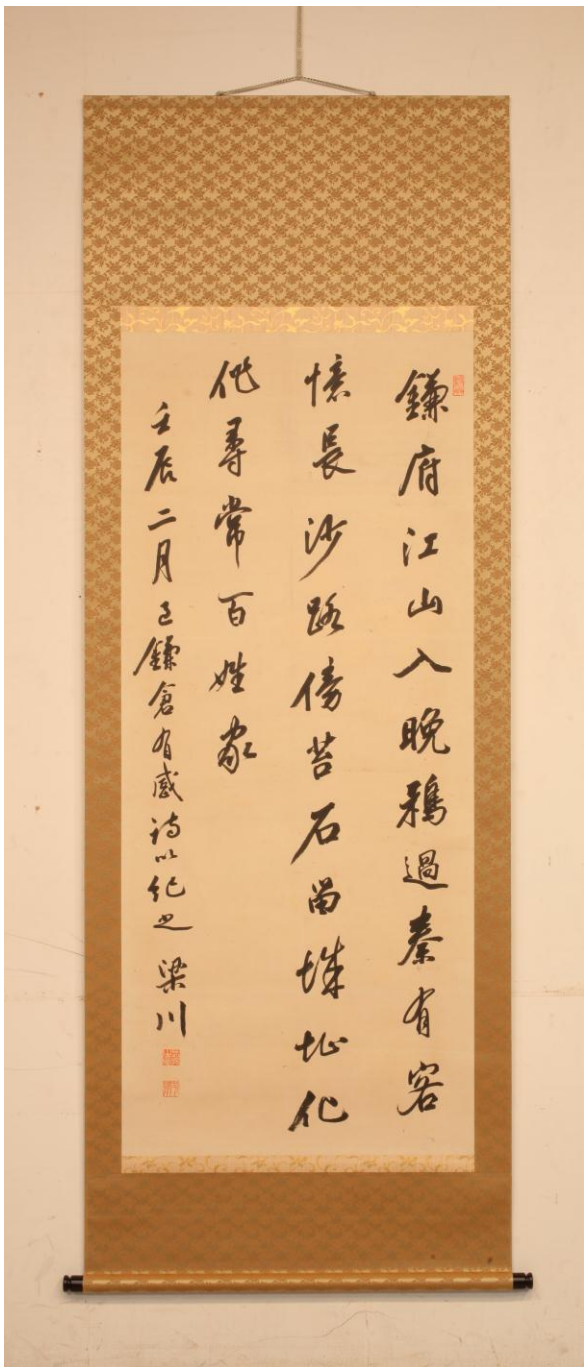 鎌府江山入晩鴉過秦有客
憶長沙路傍苔石留城址化
作尋常百姓家
壬辰二月過鎌倉有感詩以紀之 梁川